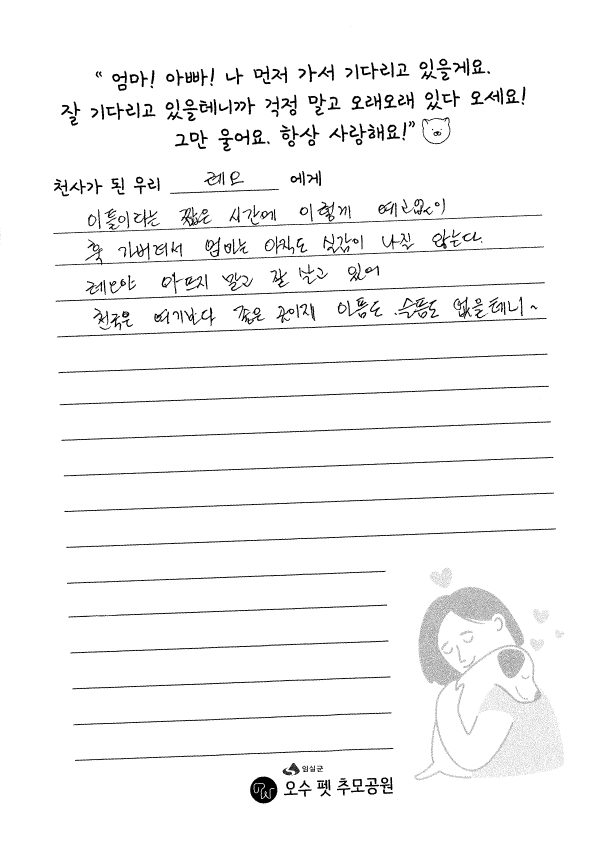 “ 엄마! 아빠! 나 먼저 가서 기다리고 있을게요.
잘 기다리고 있을테니까 걱정 말고 오래오래 있다 오세요!
그만 울어요. 항상 사랑해요!”
천사가 된 우리 레오 에게
이틀이라는 짧은 시간에 이렇게 예고없이
훅 가버려서 엄마는 아직도 실감이 나질 않는다.
레오야 아프지 말고 잘 놀고 있어
천국은 여기보다 좋은 곳이제 아픔도 슬픔도 없을테니~
임실군
오수 펫 추모공원